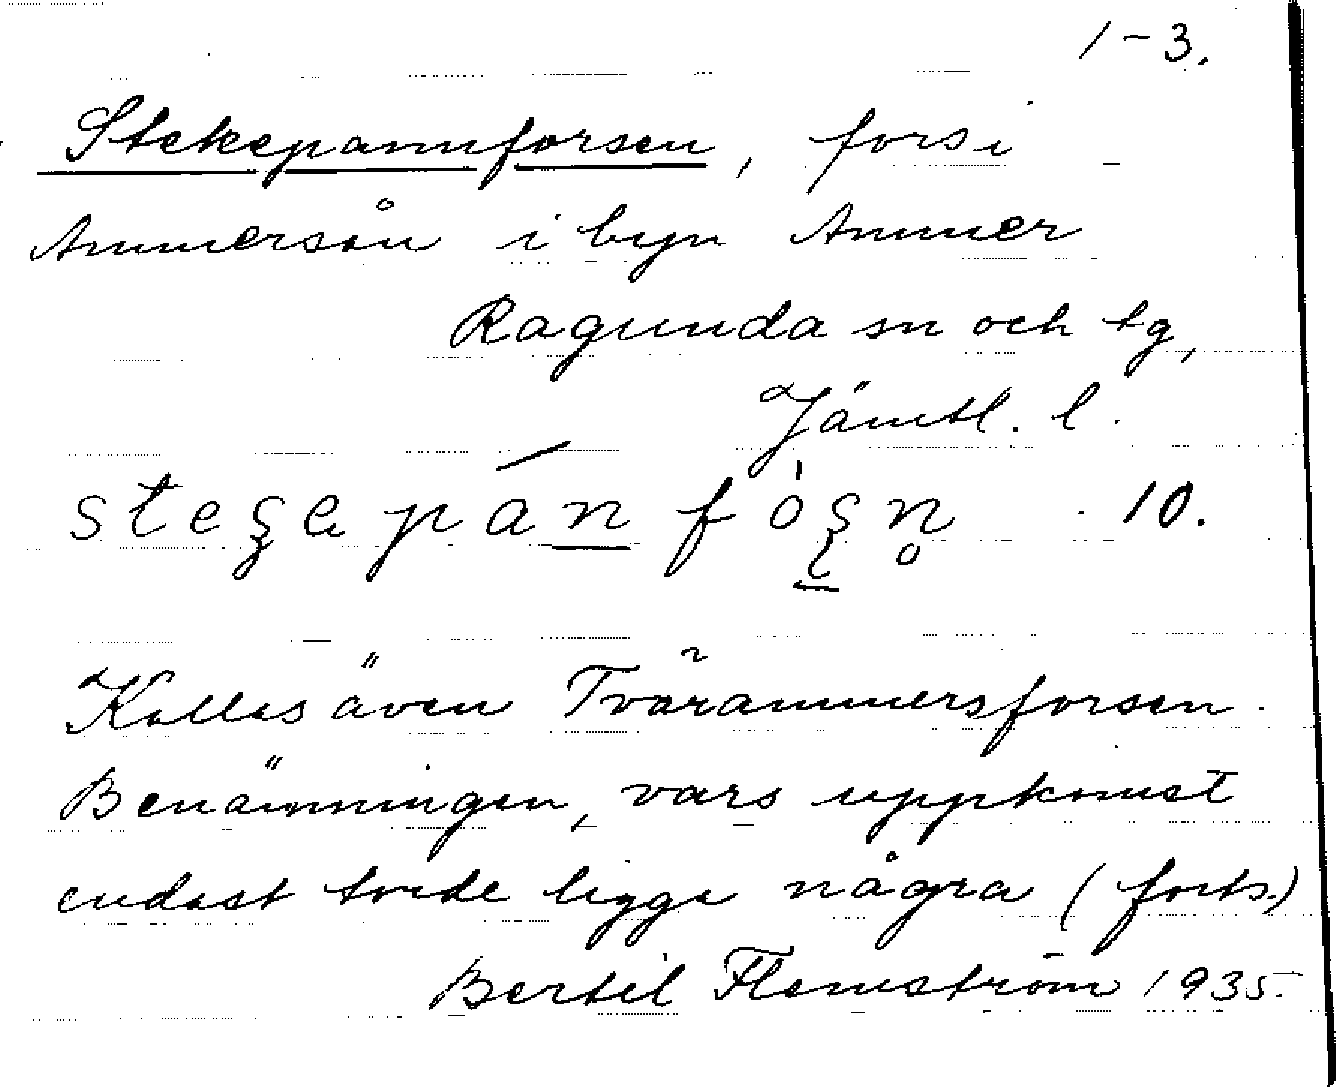 1-3.
Stekepannforsen, fors i
Ammersån i byn Ammer
Ragunda sn och tg,
Jämtl. l.
10.
Kallas även Tvärammersforsen.
Benämningen, vars uppkomst
endast torde ligga några (forts.)
Bertil Flemström 1935.